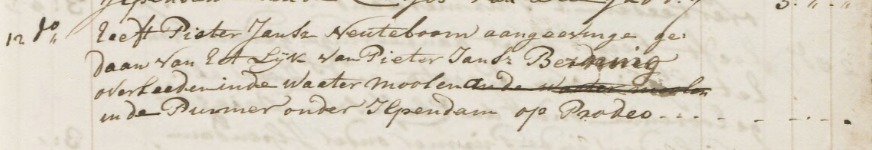 12 do„ heeft Pieter Jansz Neuteboom aangeevinge ge„
daan van het Lijk van Pieter Jansz
overleeden in de Waater moolen in de Waater moolen
in de Purmer onder Ilpendam op Prodeo . . . . - . - . . -